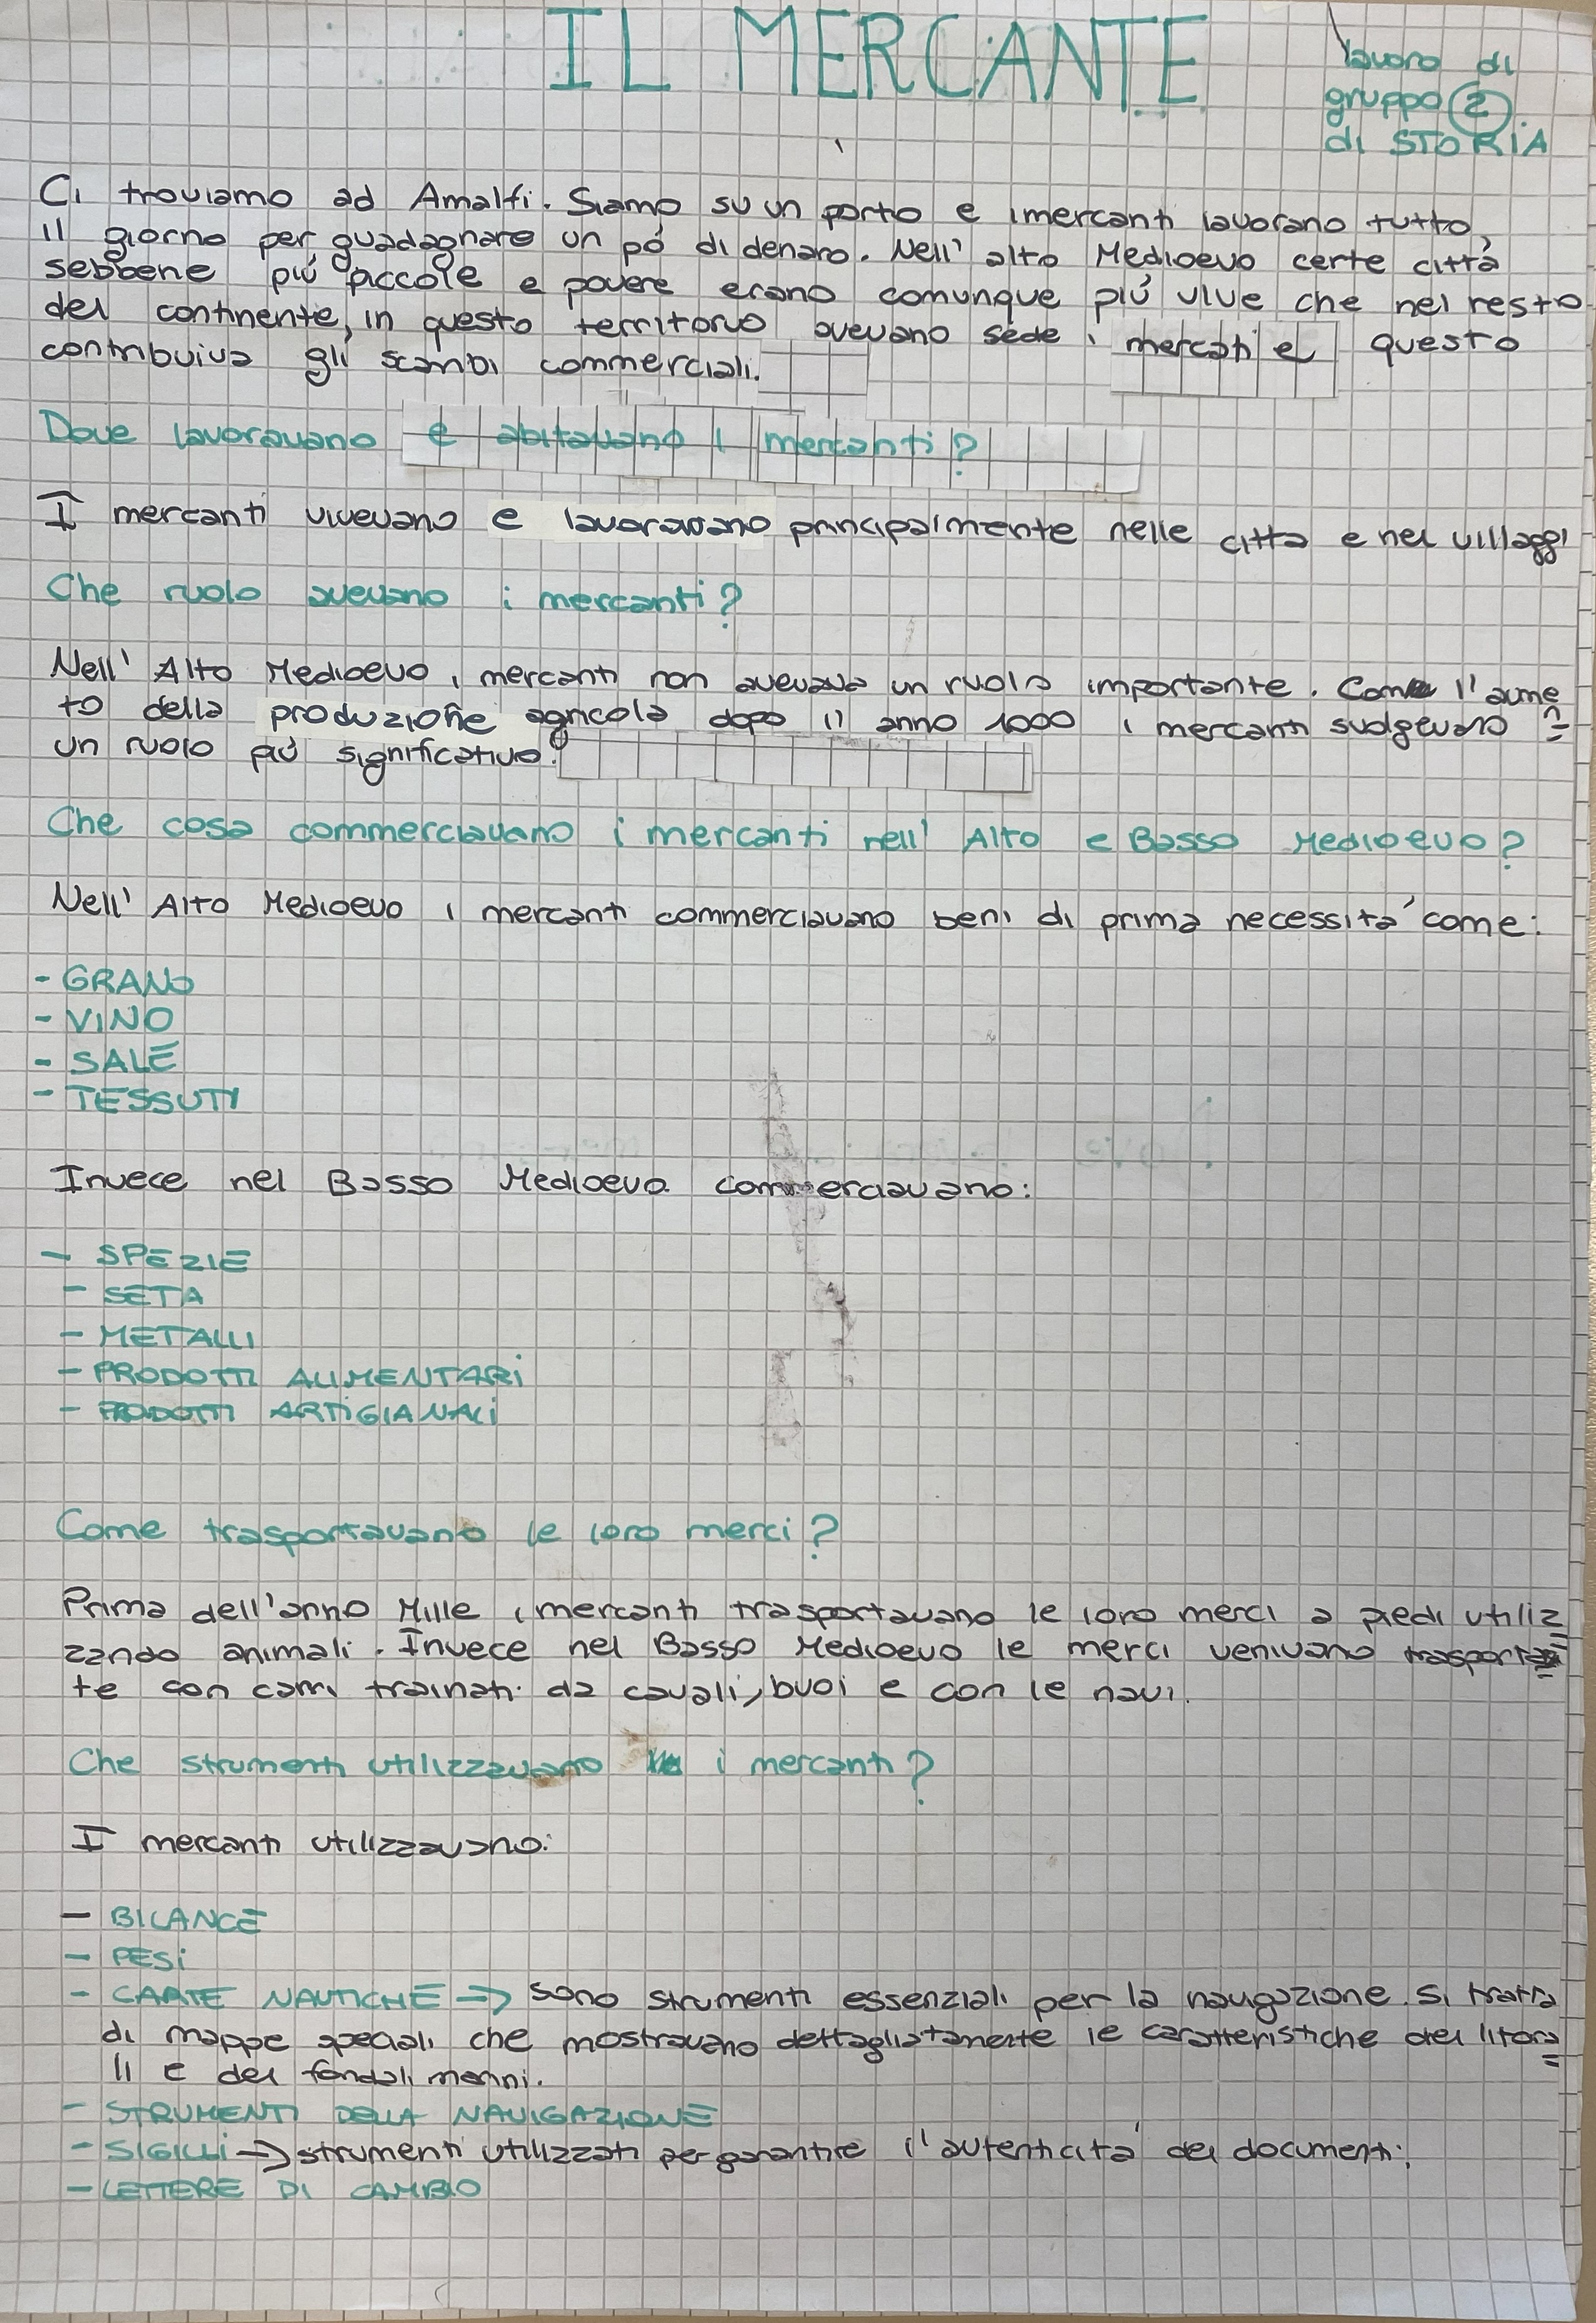 IL MERCANTE
lavoro di
gruppo 2
di STORIA
Ci troviamo ad Amalfi. Siamo su un porto e i mercanti lavorano tutto
il giorno per guadagnare un pó di denaro. Nell' alto Medioevo certe città,
sebbene piú piccole e povere erano comunque piú vive che nel resto
del continente, in questo territorio avevano sede i mercati e questo
contribuiva gli scambi commerciali.
Dove lavoravano e abitavano i mercanti?
I mercanti vivevano e lavoravano principalmente nelle citta e nei villaggi
Che ruolo avevano i mercanti?
Nell' Alto Medioevo i mercanti non avevano un ruolo importante. Con l'aume
to della produzione agricola dopo l' anno 1000 i mercanti svolgevano
un ruolo piú significativo.
Che cosa commerciavano i mercanti nell' Alto e Basso Medioevo?
Nell' Alto Medioevo i mercanti commerciavano beni di prima necessita' come:
- GRANO
- VINO
- SALE
- TESSUTI
Invece nel Basso Medioevo commerciavano:
- SPEZIE
- SETA
- METALLI
- PRODOTTI ALIMENTARI
- PRODOTTI ARTIGIANALI
Come trasportavano le loro merci?
Prima dell'anno Mille i mercanti trasportavano le loro merci a piedi utiliz=
zando animali. Invece nel Basso Medioevo le merci venivano trasporta=
te con carri trainati da cavali, buoi e con le navi.
Che strumenti utilizzavano i mercanti?
I mercanti utilizzavano:
- BILANCE
- PESI
- CARTE NAUTICHE => sono strumenti essenziali per la navigazione. Si tratta
di mappe speciali che mostravano dettagliatamente le caratteristiche dei litora=
li e dei fondali marini.
- STRUMENTI DELLA NAVIGAZIONE
- SIGILLI -> strumenti utilizzati per garantire l'autenticita' dei documenti;
- LETTERE DI CAMBIO